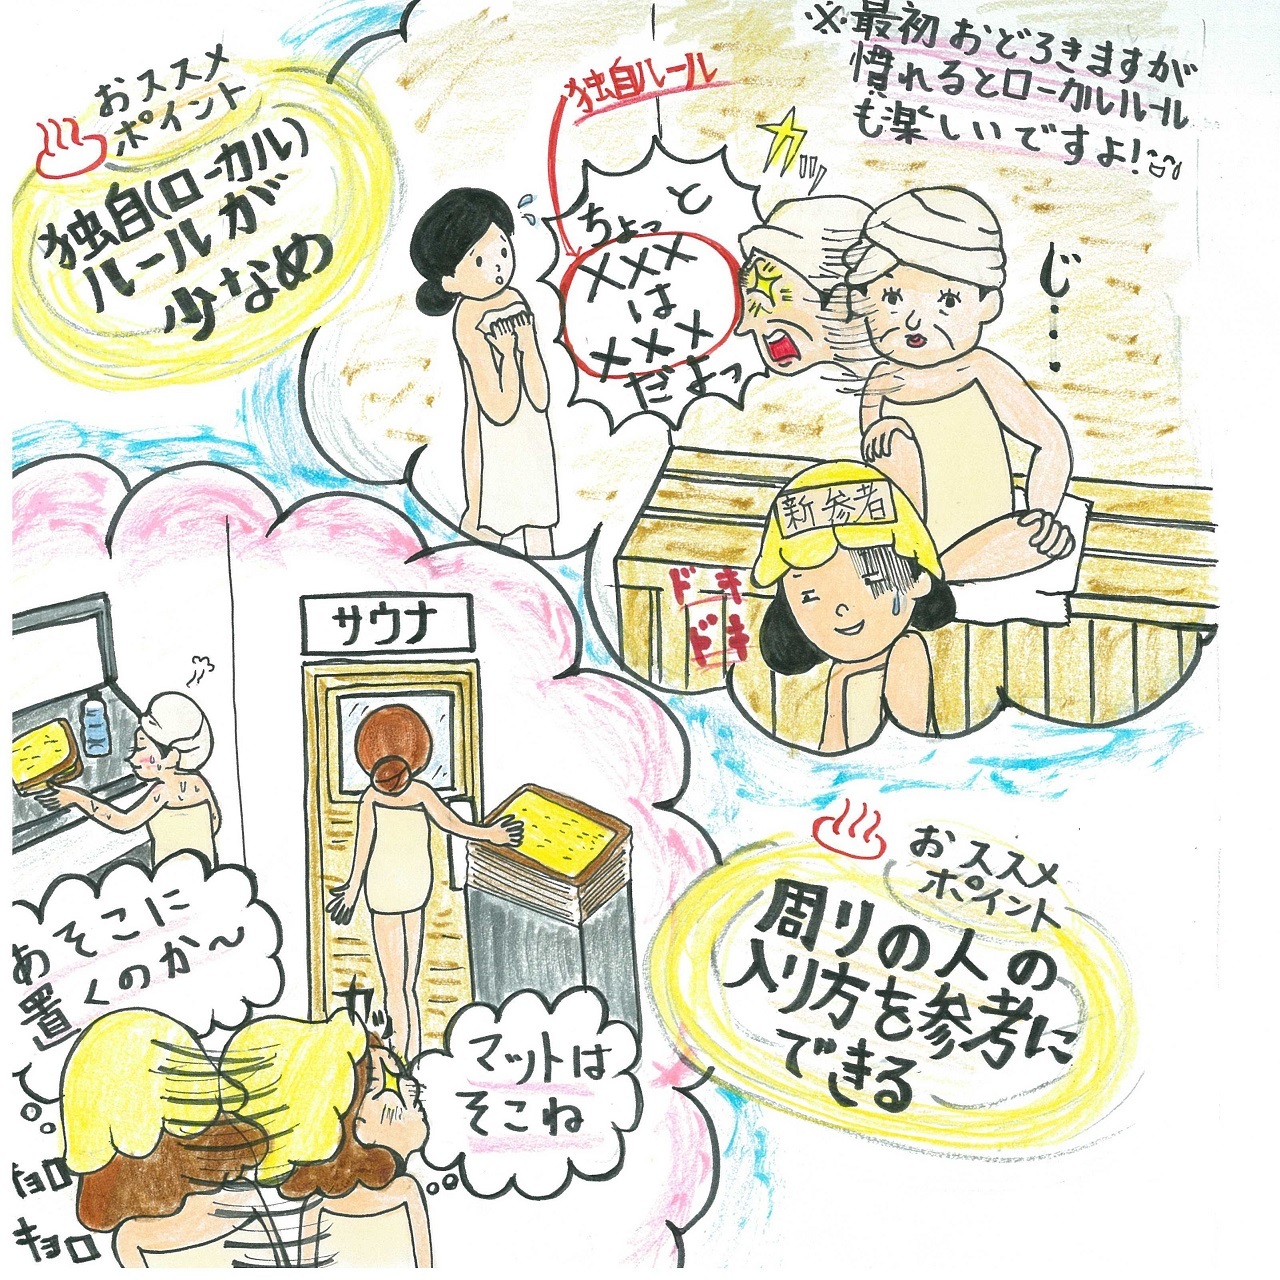 おススメ
ポイント
独自(ローカル)
ルールが
少なめ
独自ルール
※最初おどろきますが
慣れるとローカルルール
も楽しいですよ!
ちょっと
×××
は
×××
だよっ
ガッ
じ…
新参者
ドキ
ドキ
サウナ
あそこに
置くのか〜
て
キョロ
キョロ
カッ
マットは
そこね
おススメ
ポイント
周りの人の
入り方を参考に
できる